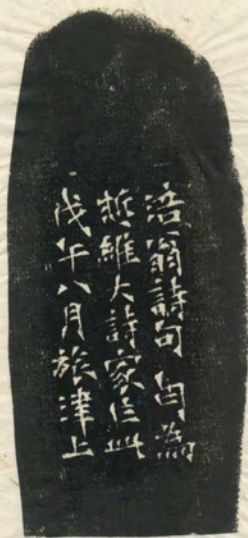 涪翁詩句 為
哲維大詩家作此
戊午八月旅津上